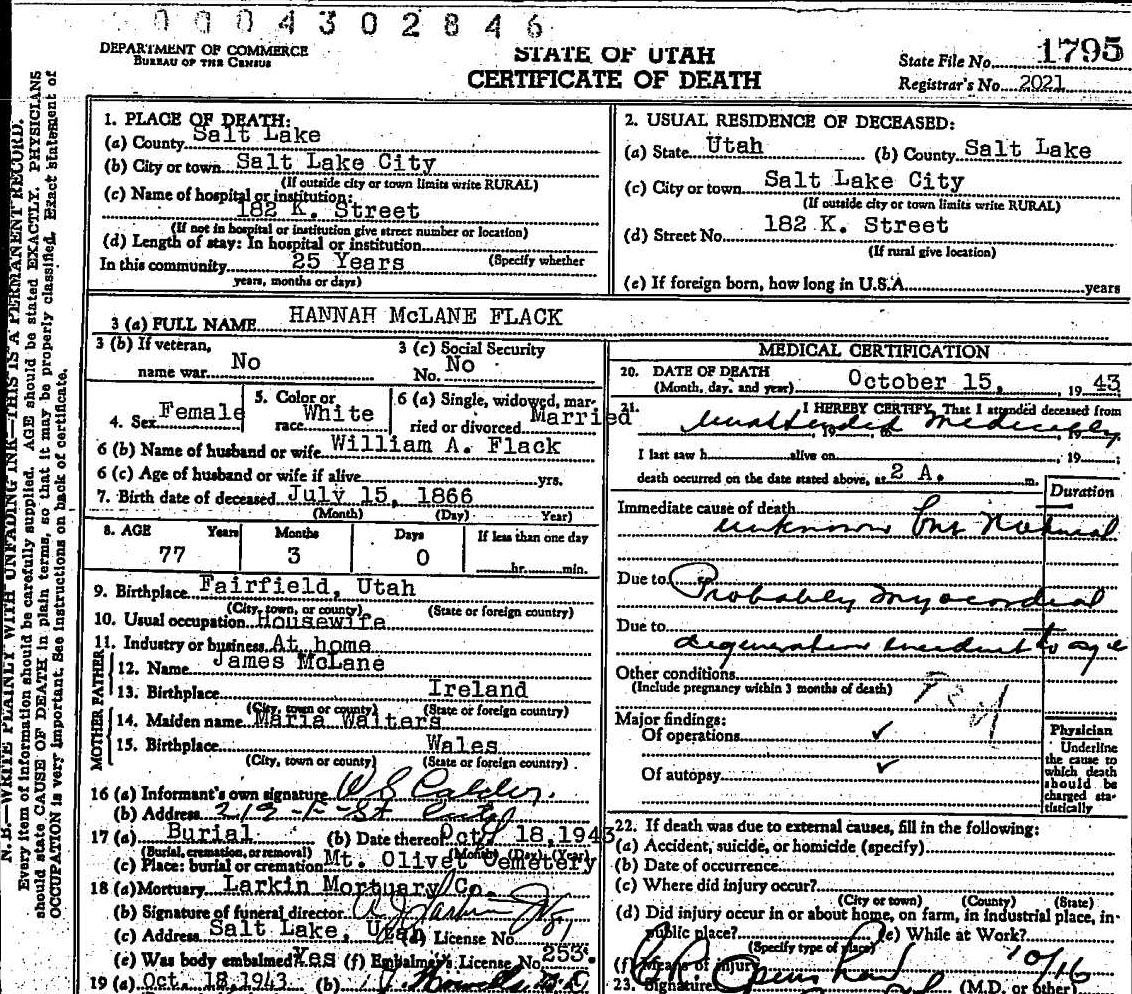 0004302846
DEPARTMENT OF COMMERCE
BUREAU OF THE CENSUS
STATE OF UTAH
CERTIFICATE OF DEATH
State File No. 1795
Registrar's No. 2021
N. B.—WRITE PLAINLY WITH UNFADING INK—THIS IS A PERMANENT RECORD.
Every item of information should be carefully supplied. AGE should be stated EXACTLY. PHYSICIANS
should state CAUSE OF DEATH in plain terms, so that it may be properly classified. Exact statement of
OCCUPATION is very important. See instructions on back of certificate.
1. PLACE OF DEATH:
(a) County Salt Lake
(b) City or town Salt Lake City
(If outside city or town limits write RURAL)
(c) Name of hospital or institution:
182 K. Street
(If not in hospital or institution give street number or location)
(d) Length of stay: In hospital or institution
In this community 25 Years (Specify whether
years, months or days)
2. USUAL RESIDENCE OF DECEASED:
(a) State Utah (b) County Salt Lake
(c) City or town Salt Lake City
(If outside city or town limits write RURAL)
(d) Street No. 182 K. Street
(If rural give location)
(e) If foreign born, how long in U.S.A. years
3 (a) FULL NAME HANNAH McLANE FLACK
3 (b) If veteran,
name war No
3 (c) Social Security
No. No
4. Sex Female
5. Color or
race White
6 (a) Single, widowed, mar-
ried or divorced Married
6 (b) Name of husband or wife William A. Flack
6 (c) Age of husband or wife if alive yrs.
7. Birth date of deceased July 15, 1866
(Month) (Day) Year)
8. AGE Years Months Days If less than one day
77 3 0 hr. min.
9. Birthplace Fairfield, Utah
(City, town, or county) (State or foreign country)
10. Usual occupation Housewife
11. Industry or business At home
FATHER
12. Name James McLane
13. Birthplace Ireland
(City, town or county) (State or foreign country)
MOTHER
14. Maiden name Maria Walters
15. Birthplace Wales
(City, town or county) (State or foreign country)
16 (a) Informant's own signature W S Calder.
(b) Address 219 - F - St
17 (a) Burial (b) Date thereof Oct 18, 1943
(Burial, cremation, or removal) (Month) (Day) (Year)
(c) Place: burial or cremation Mt. Olivet Cemetery
18 (a) Mortuary Larkin Mortuary Co.
(b) Signature of funeral director
(c) Address Salt Lake, Utah (d) License No.
(e) Was body embalmed? Yes (f) Embalmer's License No. 253.
19 (a) Oct. 18, 1943 (b)
MEDICAL CERTIFICATION
20. DATE OF DEATH
(Month, day, and year) October 15, 19 43
21. I HEREBY CERTIFY, That I attended deceased from
unattended medically
19 to 19
I last saw h alive on , 19 ;
death occurred on the date stated above, at 2 A. m.
Duration
Immediate cause of death
unknown but natural
Due to Probably myocardial
Due to
degeneration incident to age
Other conditions
(Include pregnancy within 3 months of death)
Major findings:
Of operations ✓
Of autopsy ✓
Physician
Underline
the cause to
which death
should be
charged sta-
tistically
22. If death was due to external causes, fill in the following:
(a) Accident, suicide, or homicide (specify)
(b) Date of occurrence
(c) Where did injury occur?
(City or town) (County) (State)
(d) Did injury occur in or about home, on farm, in industrial place, in-
public place? (e) While at Work?
(Specify type of place)
(f) Means of injury 10/16
23. Signature (M.D. or other)